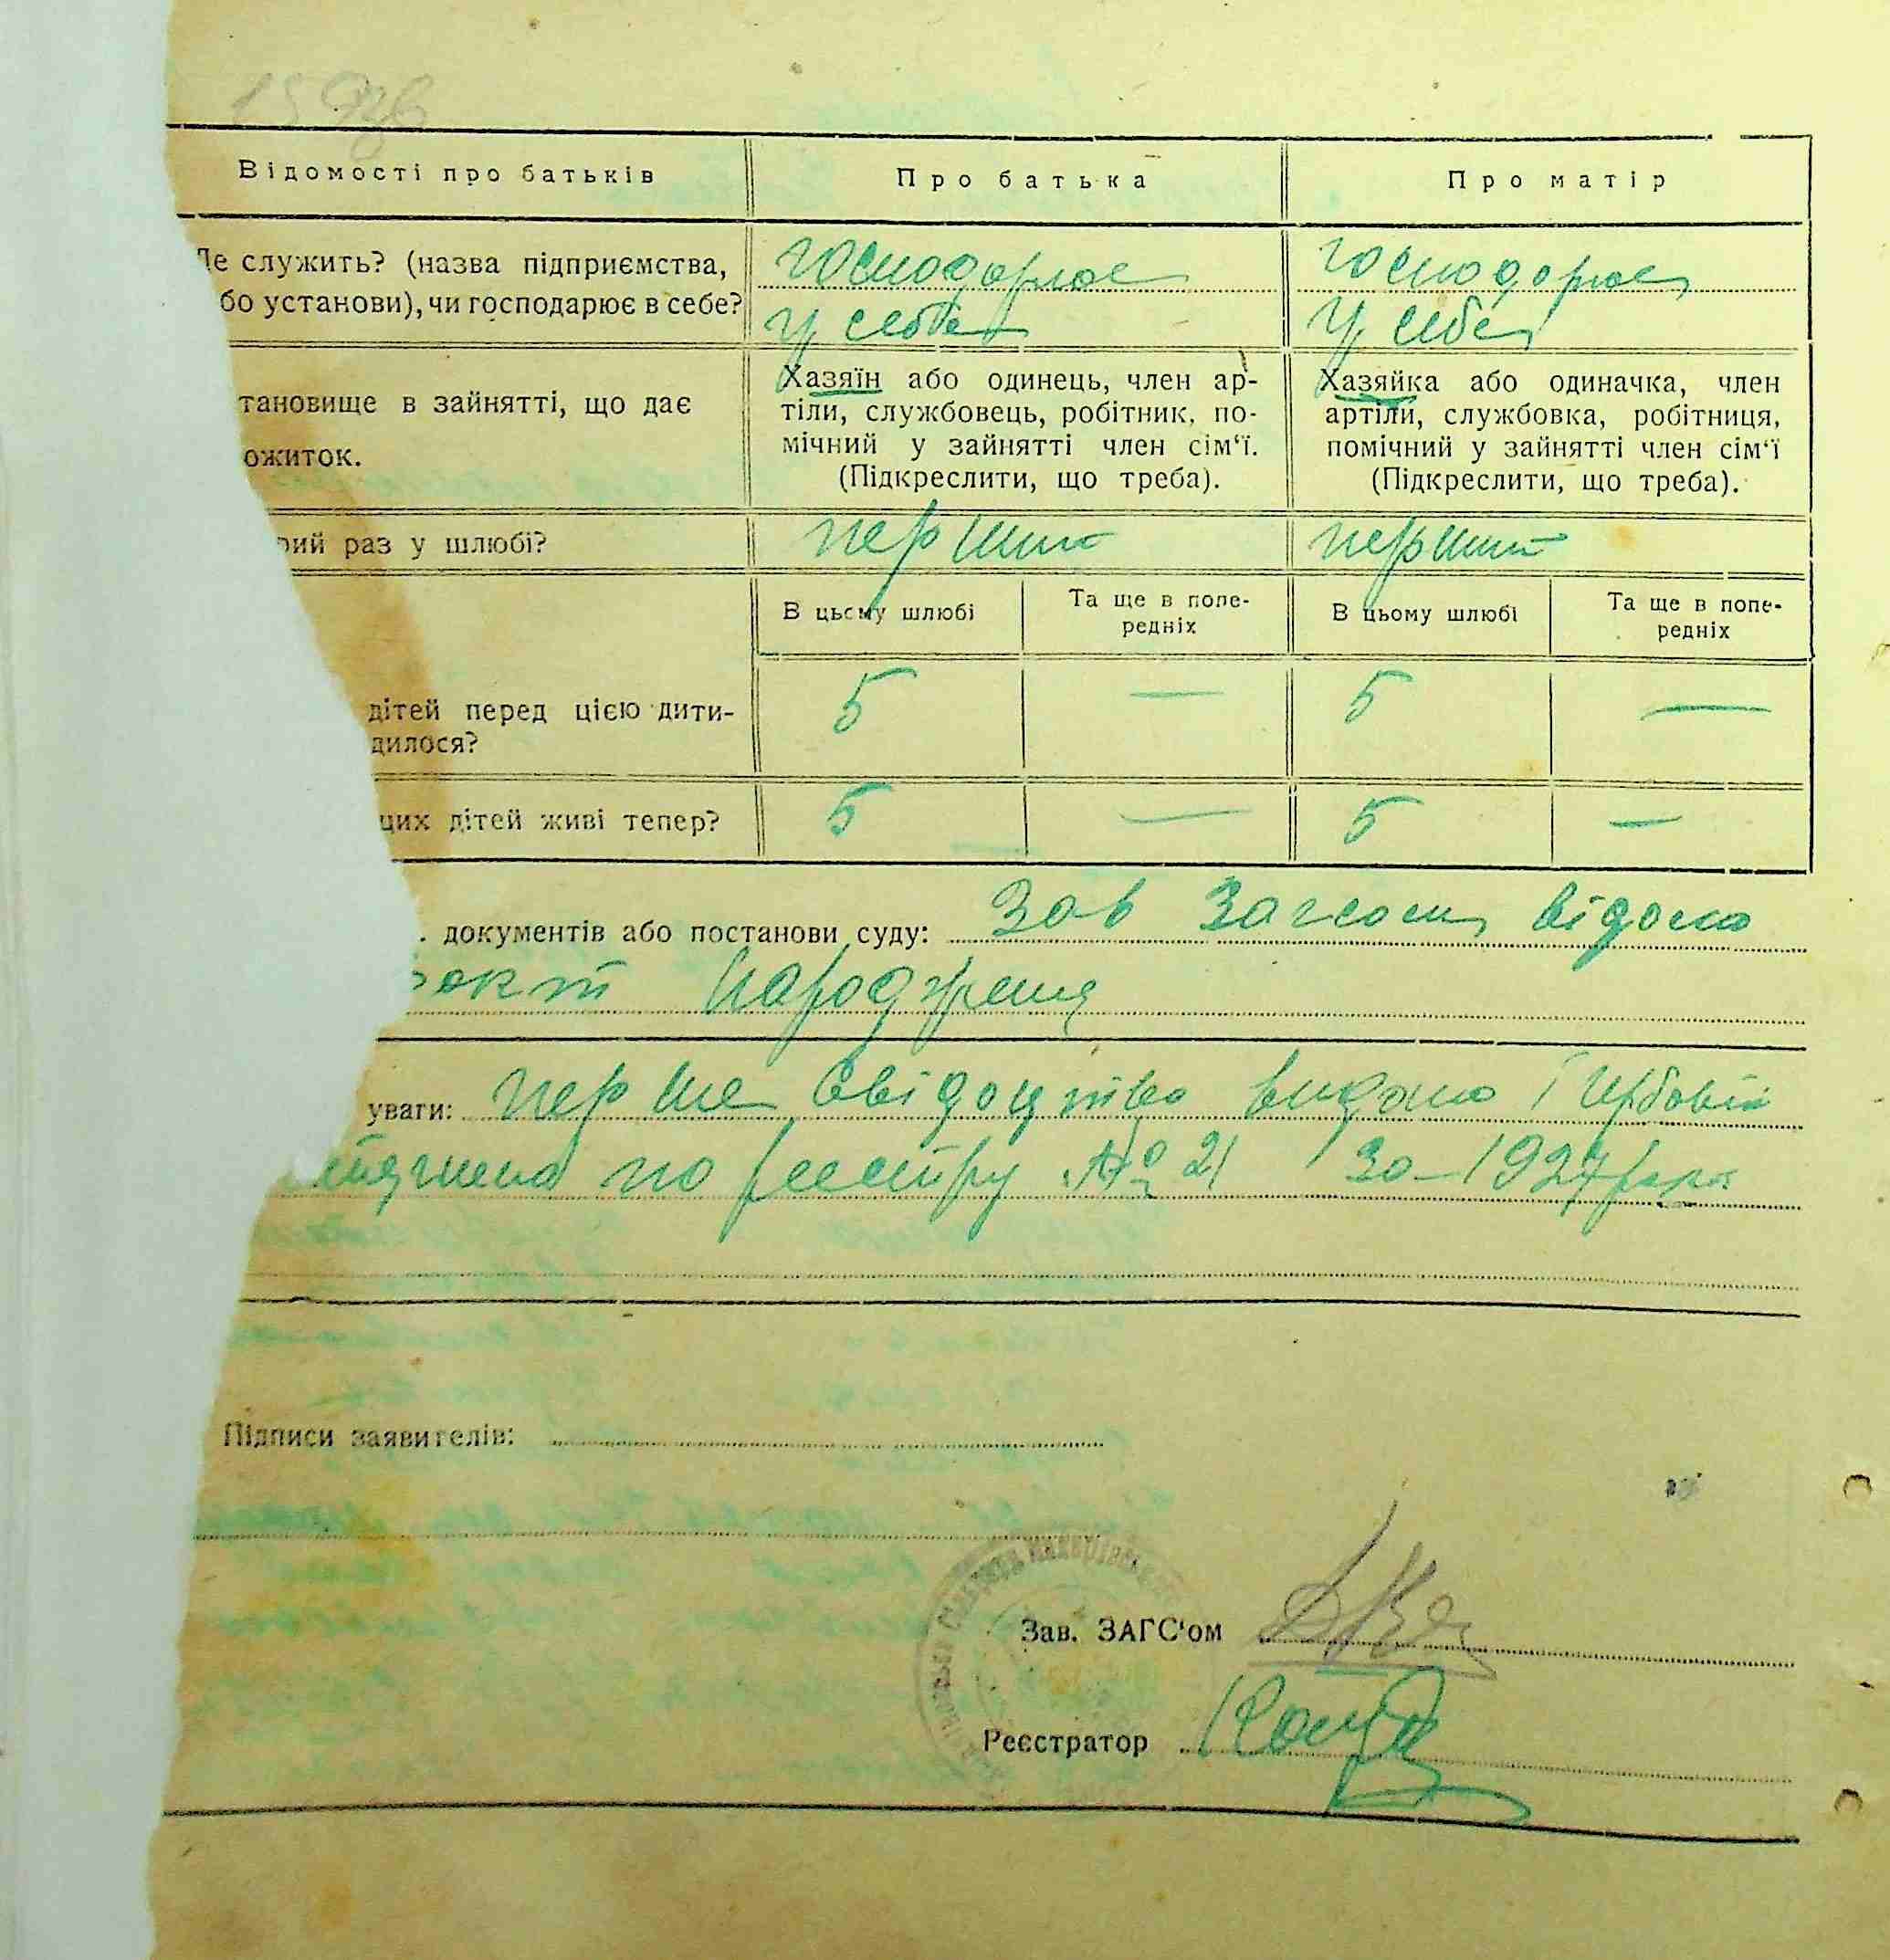 Відомості про батьків Про батька Про матір
Де служить? (назва підприємства,
бо установи), чи господарює в себе?
господарює
у себе
господарює
у себе
тановище в зайнятті, що дає
ожиток.
Хазяїн або одинець, член ар-
тіли, службовець, робітник, по-
мічний у зайнятті член сім‘ї.
(Підкреслити, що треба).
Хазяйка або одиначка, член
артіли, службовка, робітниця,
помічний у зайнятті член сім‘ї
(Підкреслити, що треба).
рий раз у шлюбі? перший перший
В цьому шлюбі
Та ще в попе-
редніх
В цьому шлюбі
Та ще в попе-
редніх
дітей перед цією дити-
дилося?
5 — 5 —
цих дітей живі тепер? 5 — 5 —
документів або постанови суду: Зав Загсом відомо
факт народження
уваги: перше свідоцтво видано
по реєстру № 21 30-1927 року
Підписи заявителів:
Зав. ЗАГС‘ом
Реєстратор